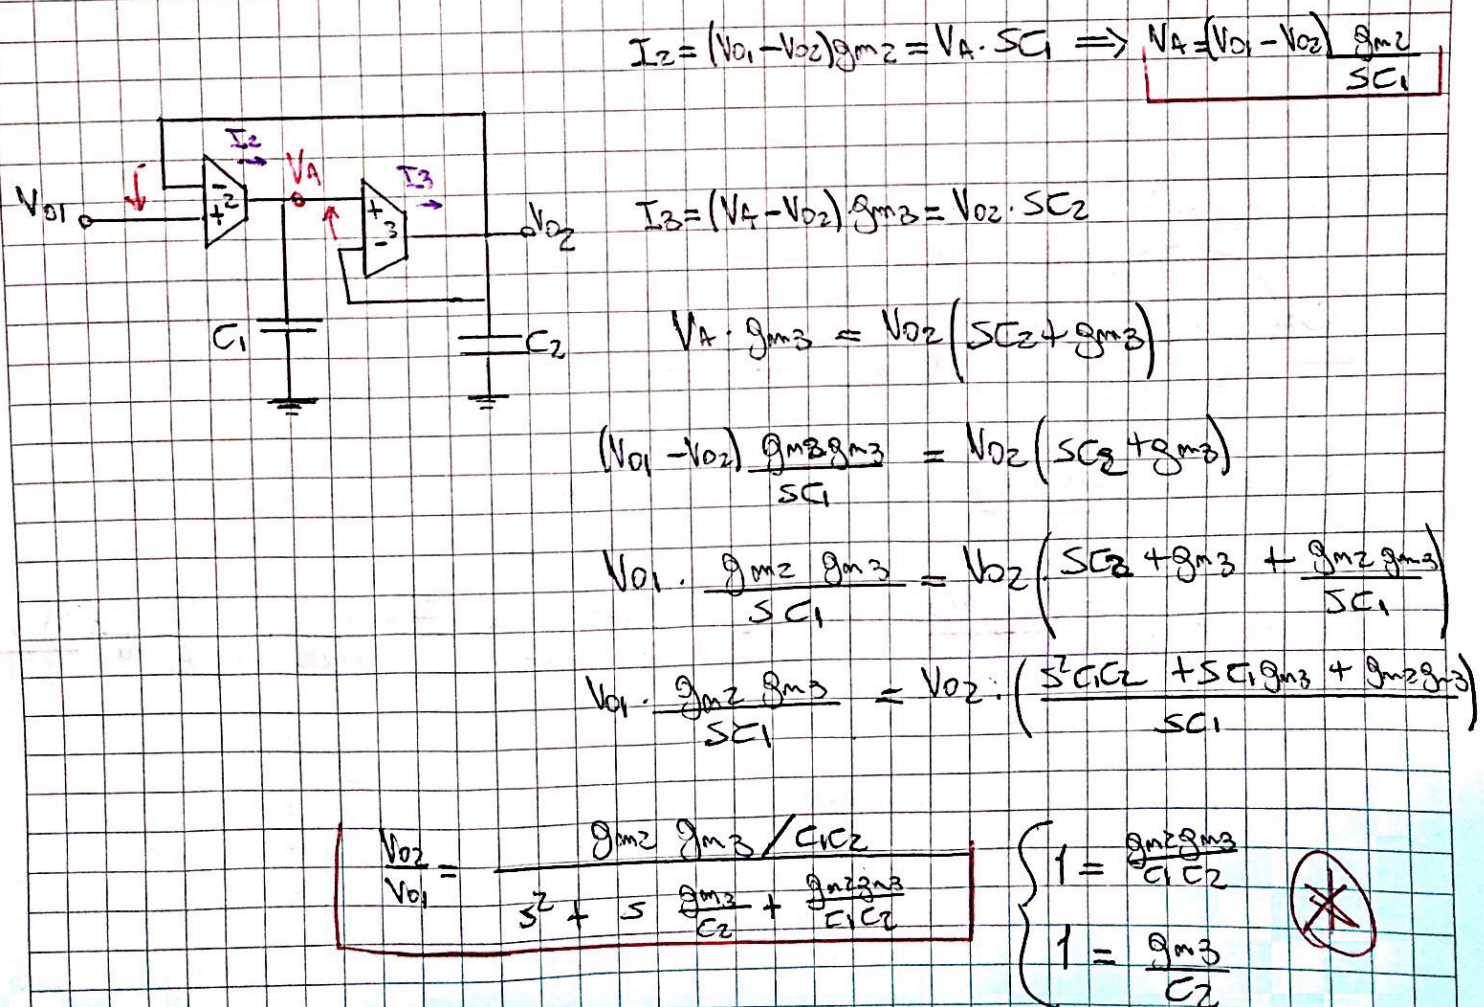 I2 = (VO1 - VO2) gm2 = VA · SC1 ⟹ VA = (VO1 - VO2) gm2 / SC1
I2 VA I3
VO1 - + 2 + - 3 VO2
I3 = (VA - VO2) · gm3 = VO2 · SC2
C1 C2
VA · gm3 = VO2 (SC2 + gm3)
(VO1 - VO2) gm2 gm3 / SC1 = VO2 (SC2 + gm3)
VO1 · gm2 gm3 / SC1 = VO2 (SC2 + gm3 + gm2 gm3 / SC1)
VO1 · gm2 gm3 / SC1 = VO2 · (S²C1C2 + SC1gm3 + gm2gm3 / SC1)
VO2 / VO1 = gm2 gm3 / C1C2 / (S² + S gm3 / C2 + gm2gm3 / C1C2)
{ 1 = gm2gm3 / C1C2
1 = gm3 / C2
*